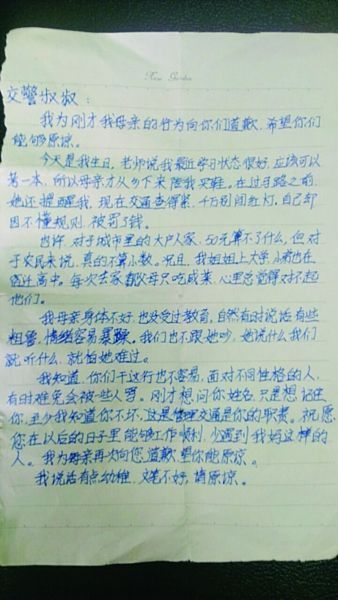 Rose Garden
交警叔叔：
我为刚才我母亲的行为向你们道歉，希望你们
能够原谅。
今天是我生日，老师说我最近学习状态很好，应该可以
第一本，所以母亲才从乡下来陪我买鞋。在过马路之前，
她还提醒我，现在交通查得紧，千万别闯红灯，自己却
因不懂规则，被罚了钱。
也许，对于城市里的大户人家，50元算不了什么，但对
于农民来说，真的不算小数。况且，我姐姐上大学，小弟也在
镇江高中。每次去家，都父母只吃咸菜，心里总觉得对不起
他们。
我母亲身体不好，也没受过教育，自然有时说话有些
粗鲁，情绪容易暴躁。我们也不跟她吵，她说什么我们
就听什么，就怕她难过。
我知道，你们干这行也不容易，面对不同性格的人，
有时难免会被些人骂。刚才想问你姓名，只是想记住
你，至少我知道你不坏，这是管理交通是你的职责。祝愿
您在以后的日子里能够工作顺利，少遇到我妈这样的
人。我为母亲再次向您道歉，望你能原谅。
我说话有点幼稚，文笔不好，请原谅。